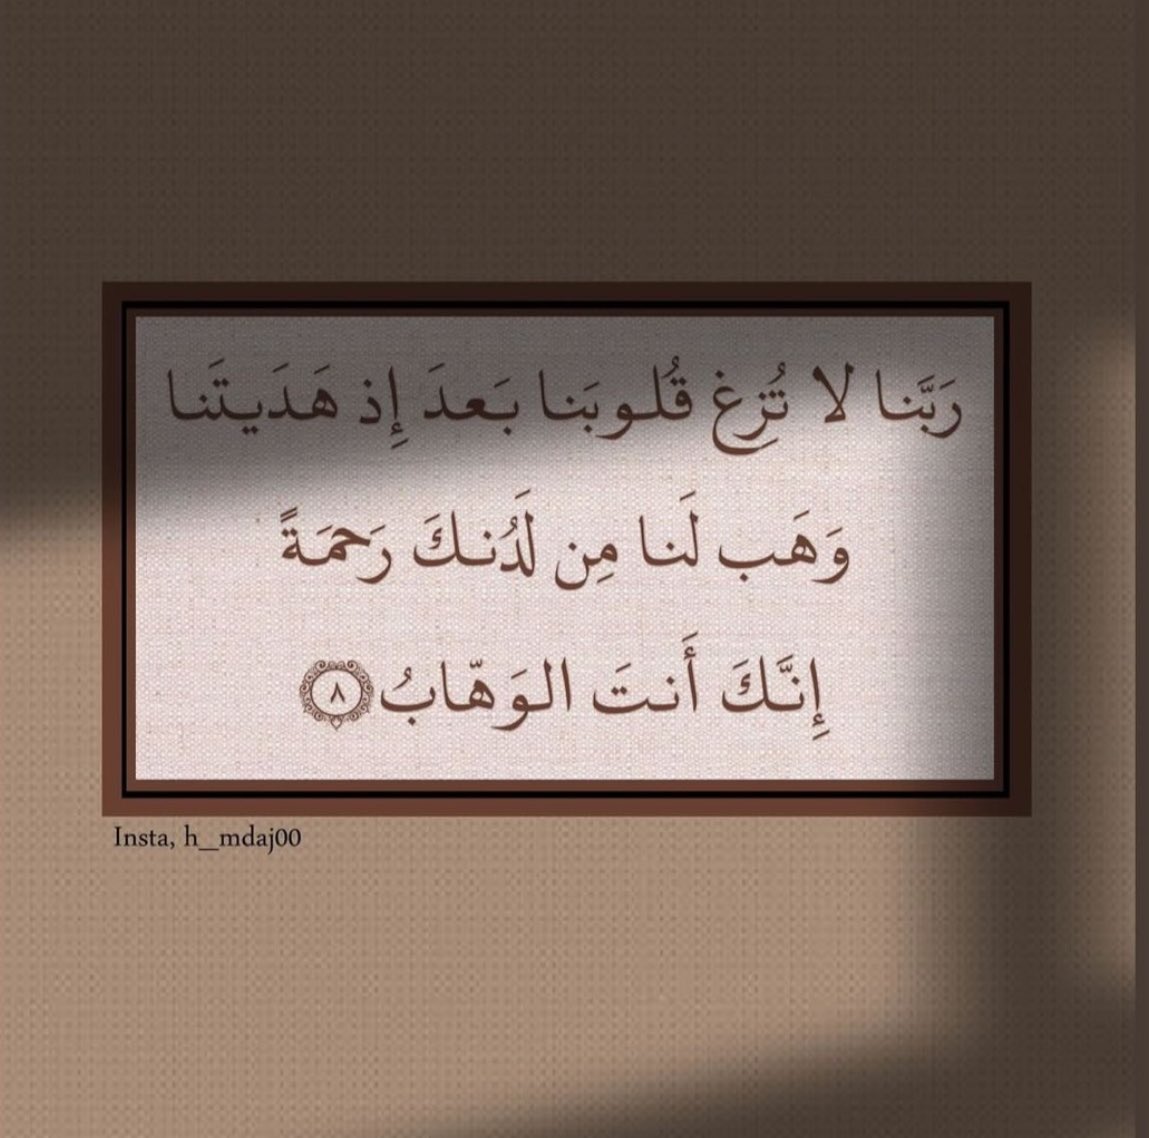 رَبَّنا لا تُزِغ قُلوبَنا بَعدَ إِذ هَدَيتَنا
وَهَب لَنا مِن لَدُنكَ رَحمَةً
إِنَّكَ أَنتَ الوَهّابُ ٨
Insta, h_mdaj00